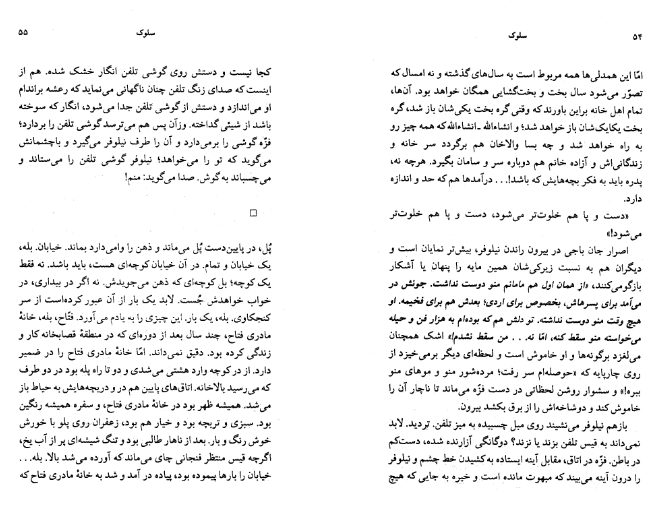 ۵۴
سلوک
امّا این همدلی‌ها همه مربوط است به سال‌های گذشته و نه امسال که
تصوّر می‌شود سال بخت و بخت‌گشایی همگان خواهد بود. آن‌ها،
تمام اهل خانه براین باورند که وقتی گره بخت یکی‌شان باز شد، گره
بخت یکایک‌شان باز خواهد شد؛ و انشاءالله ـ انشاءالله که همه چیز رو
به راه خواهد شد و چه بسا والاخان هم برگردد سر خانه و
زندگانی‌اش و آزاده خانم هم دوباره سر و سامان بگیرد. هرچه نه،
پدره باید به فکر بچه‌هایش که باشد!... درآمدها هم که حد و اندازه
دارد.
«دست و پا هم خلوت‌تر می‌شود، دست و پا هم خلوت‌تر
می‌شود!»
اصرار جان باجی در بیرون راندن نیلوفر، بیش‌تر نمایان است و
دیگران هم به نسبت زیرکی‌شان همین مایه را پنهان یا آشکار
بازگومی‌کنند، «از همان اول هم مامانم منو دوست نداشت. جونش در
می‌آمد برای پسرهاش، بخصوص برای اردی؛ بعدش هم برای فخیمه. او
هیچ وقت منو دوست نداشته. تو دلش هم که بوده‌ام به هزار فن و حیله
می‌خواسته منو سقط کنه، امّا نه... من سقط نشدم!» اشک همچنان
می‌لغزد برگونه‌ها و او خاموش است و لحظه‌ای دیگر برمی‌خیزد از
روی چارپایه که «حوصله‌ام سر رفت؛ مرده‌شور منو و موهای منو
ببره!» و سشوار روشن لحظاتی در دست فزّه می‌ماند تا ناچار آن را
خاموش کند و دوشاخه‌اش را از برق بکشد بیرون.
بازهم نیلوفر می‌نشیند روی مبل چسبیده به میز تلفن. تردید. لابد
نمی‌داند به قیس تلفن بزند یا نزند؟ دوگانگی آزارنده شده، دست‌کم
در باطن. فزّه در اتاق، مقابل آینه ایستاده به کشیدن خط چشم و نیلوفر
را درون آینه می‌بیند که مبهوت مانده است و خیره به جایی که هیچ
سلوک
۵۵
کجا نیست و دستش روی گوشی تلفن انگار خشک شده. هم از
اینست که صدای زنگ تلفن چنان ناگهانی می‌نماید که رعشه براندام
او می‌اندازد و دستش از گوشی تلفن جدا می‌شود، انگار که سوخته
باشد از شیئی گداخته. وزآن پس هم می‌ترسد گوشی را بردارد؛
فزّه گوشی را برمی‌دارد و آن را طرف نیلوفر می‌گیرد و باچشمانش
می‌گوید که تو را می‌خواهد؛ نیلوفر گوشی تلفن را می‌ستاند و
می‌چسباند به گوش. صدا می‌گوید: منم!
پُل، در پایین‌دست پُل می‌ماند و ذهن را وامی‌دارد بماند. خیابان. بله،
یک خیابان و تمام. در آن خیابان کوچه‌ای هست، باید باشد. نه فقط
یک کوچه؛ بل کوچه‌ای که ذهن می‌جویدش. نه اگر در بیداری، در
خواب خواهدش جُست. لابد یک بار از آن عبور کرده‌است از سر
کنجکاوی. بله، یک بار. این چیزی را به یادم می‌آورد. فتّاح، بله، خانهٔ
مادری فتاح، چند سال بعد از دوره‌ای که در منطقهٔ قصابخانه کار و
زندگی کرده بود. دقیق نمی‌داند. امّا خانهٔ مادری فتاح را در ضمیر
دارد. از در کوچه وارد هشتی می‌شدی و دو تا راه پله بود در دو طرف
که می‌رسید بالاخانه. اتاق‌های پایین هم در و دریچه‌هایش به حیاط باز
می‌شد. همیشه ظهر بود در خانهٔ مادری فتاح، و سفره همیشه رنگین
بود. سبزی و تربچه بود و خیار هم بود، زعفران روی پلو با خورش
خوش رنگ و بار. بعد از ناهار طالبی بود و تنگ شیشه‌ای پر از آب یخ،
اگرچه قیس منتظر فنجانی چای می‌ماند که آورده می‌شد بالا. بله...
خیابان را بارها پیموده بود، پیاده در آمد و شد به خانهٔ مادری فتاح که